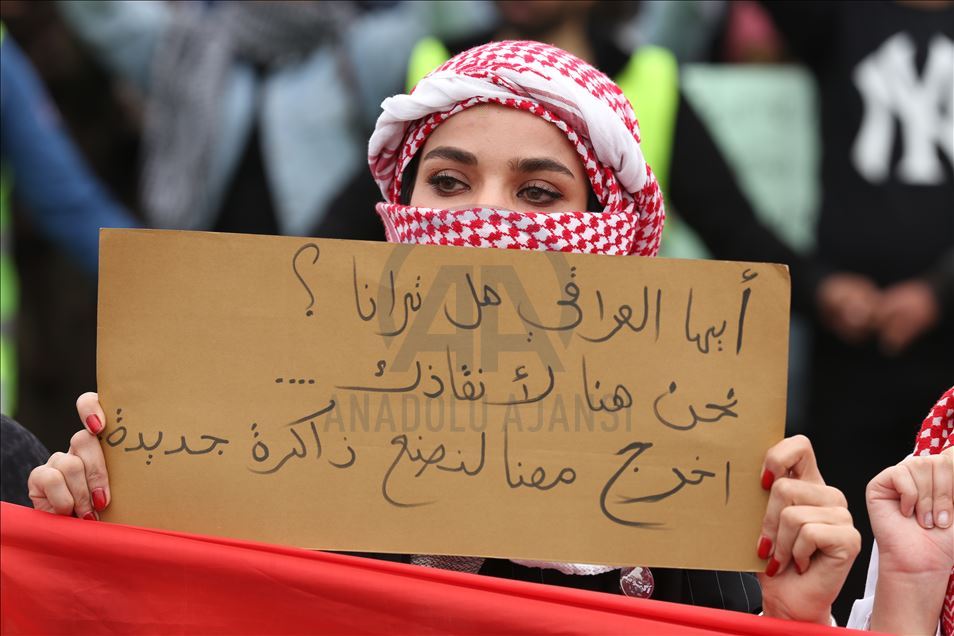 أيها العراقي هل ترانا ؟
نحن هنا لأنقاذك ....
اخرج معنا لنصنع ذاكرة جديدة
AA
ANADOLU AJANSI
NY